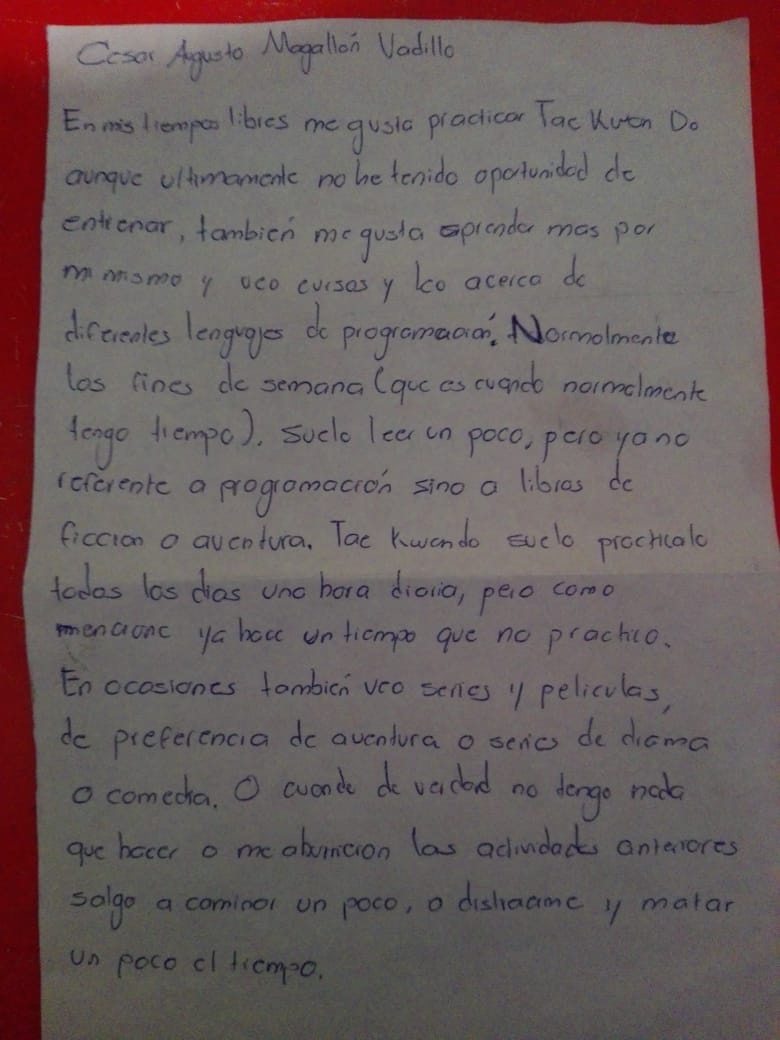 Cesar Augusto Magallón Vadillo
En mis tiempos libres me gusta practicar Tae Kwon Do
aunque ultimamente no he tenido oportunidad de
entrenar, también me gusta aprender mas por
mi mismo y veo cursos y leo acerca de
diferentes lenguajes de programación. Normalmente
los fines de semana (que es cuando normalmente
tengo tiempo). suelo leer un poco, pero ya no
referente a programación sino a libros de
ficcion o aventura. Tae Kwondo suelo practicalo
todos los dias una hora diaria, pero como
mencione ya hace un tiempo que no practico.
En ocasiones también veo series y peliculas,
de preferencia de aventura o series de drama
o comedia. O cuando de verdad no tengo nada
que hacer o me aburricion las actividades anteriores
salgo a caminar un poco, o distraerme y matar
un poco el tiempo.